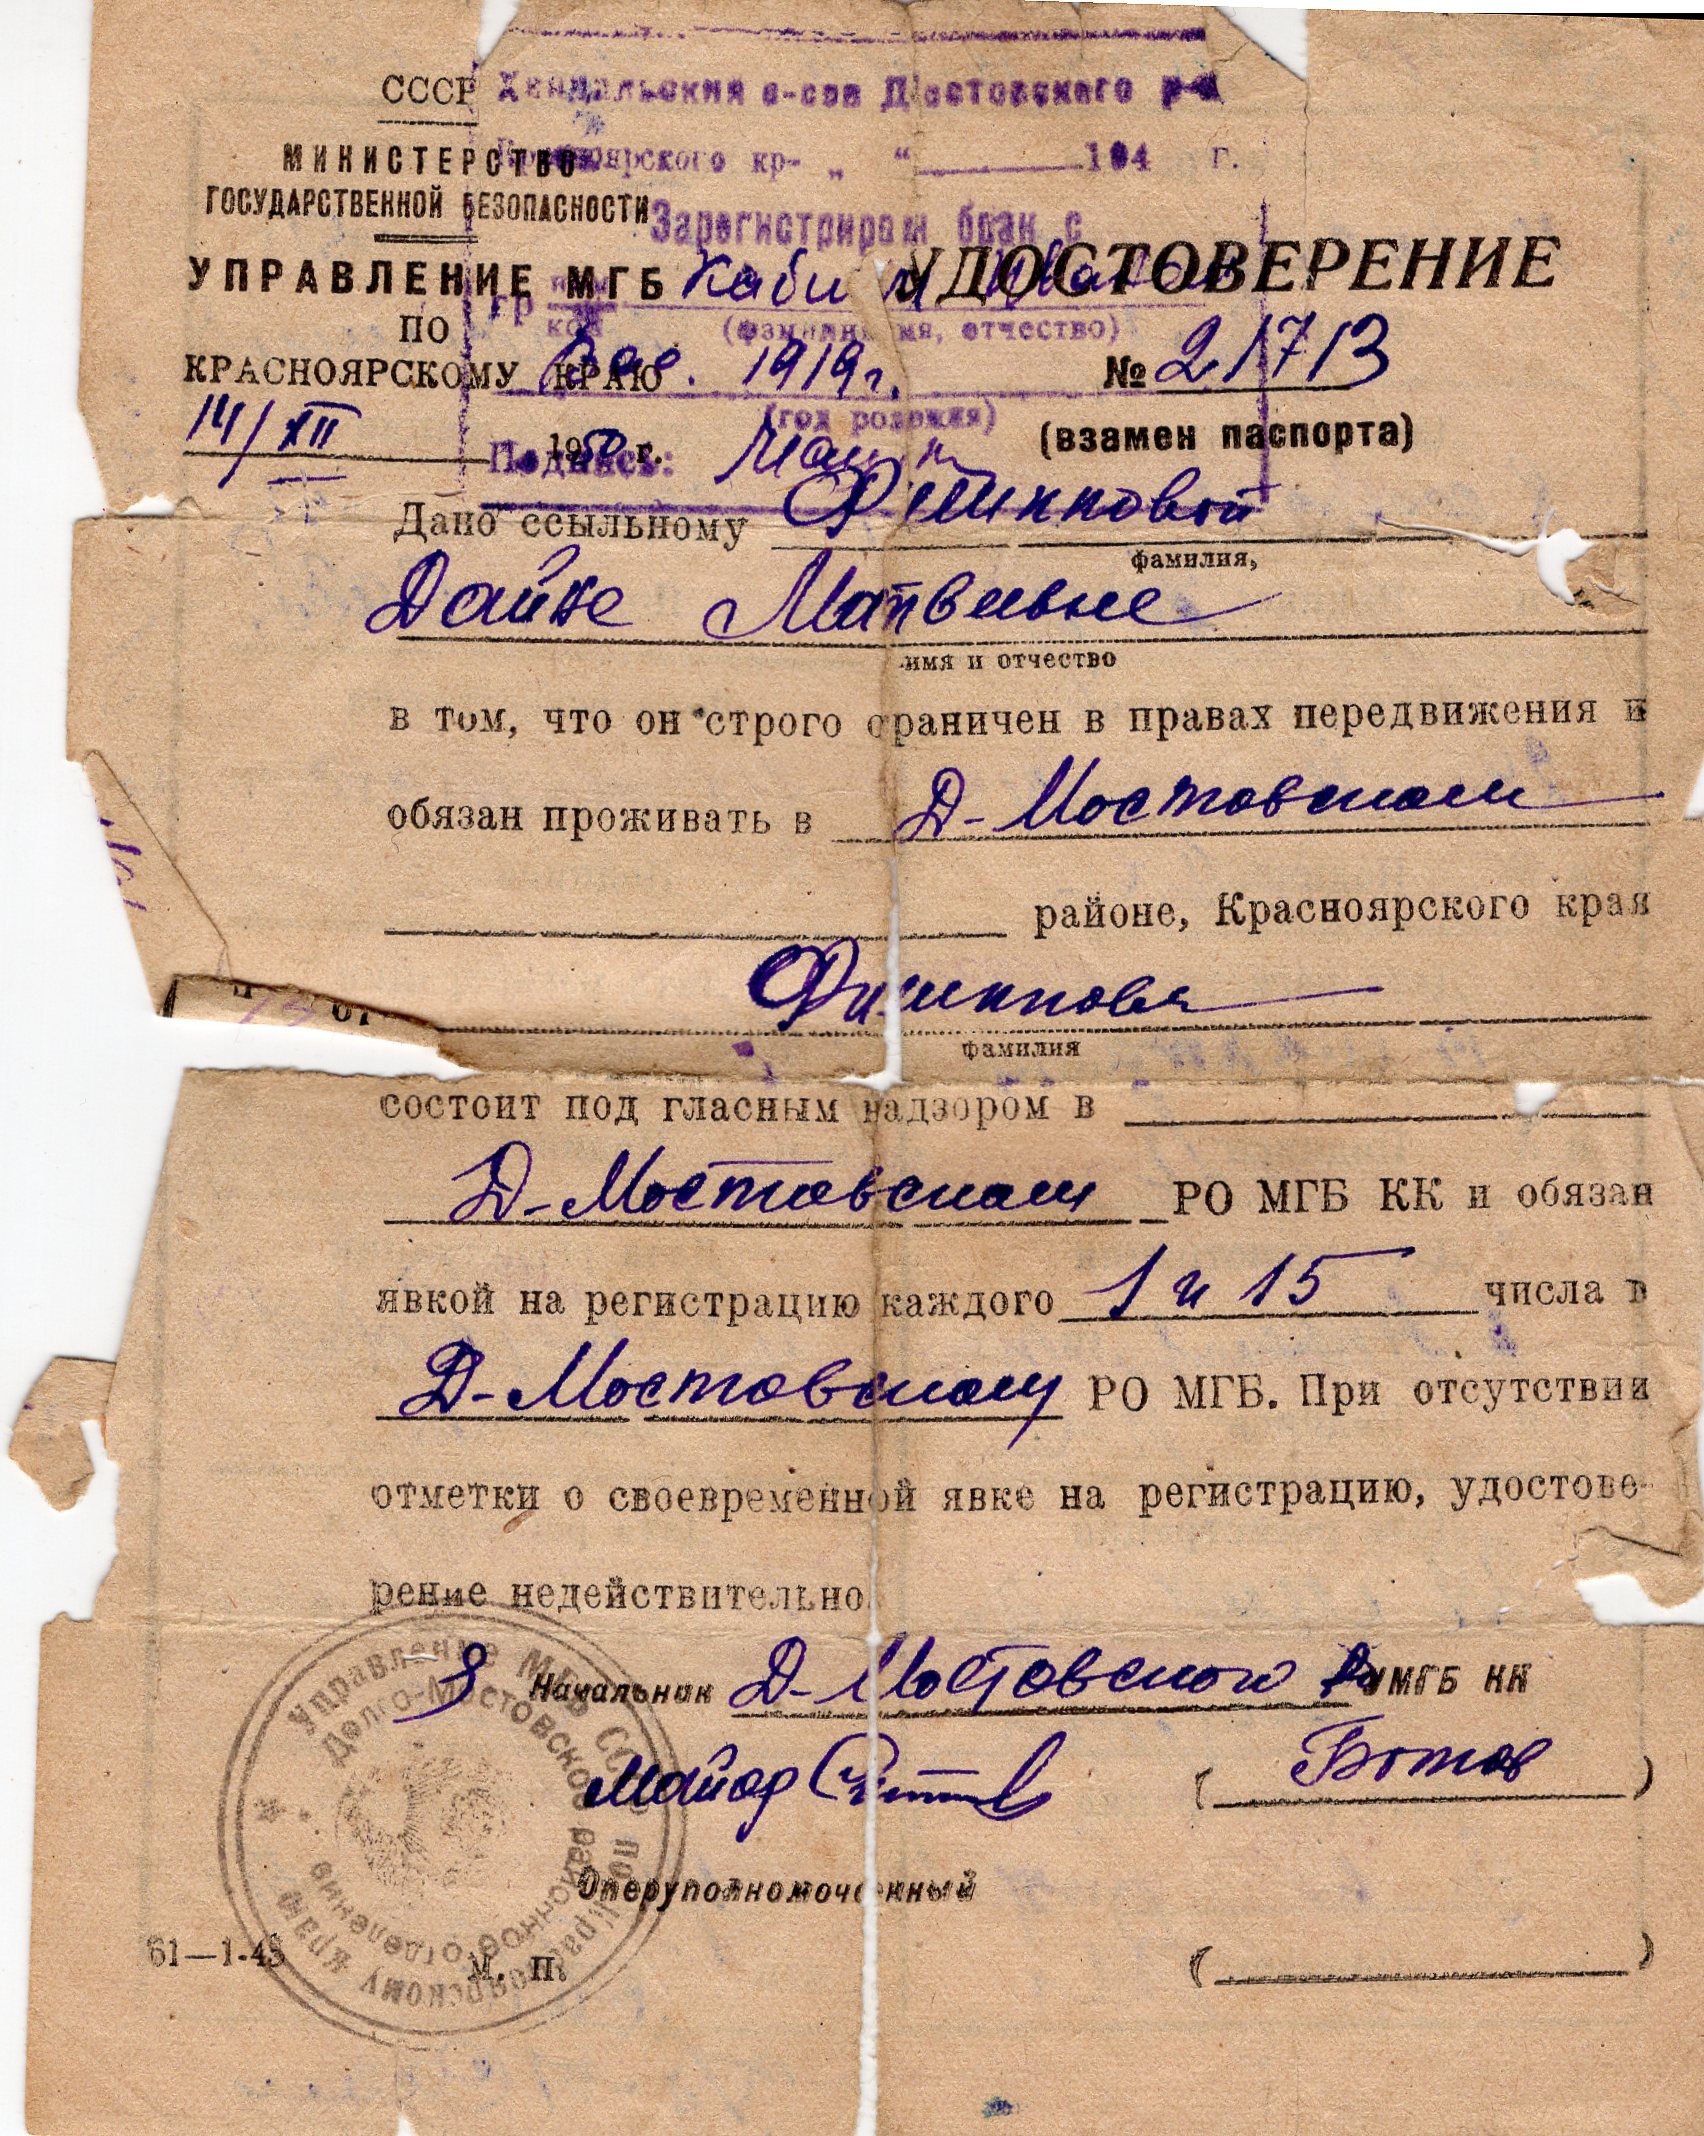 СССР
МИНИСТЕРСТВО
ГОСУДАРСТВЕННОЙ БЕЗОПАСНОСТИ
УПРАВЛЕНИЕ МГБ
ПО
КРАСНОЯРСКОМУ КРАЮ
14/XII 1950 г.
с-сов Д Мостовского р-а
Красноярского кр- „ “ 194 г.
Зарегистрирован брак с
гр
(фамилия, имя, отчество)
1919г.
(год рождения)
Подпись:
УДОСТОВЕРЕНИЕ
№ 21713
(взамен паспорта)
Дано ссыльному
фамилия,
Дайне Матвеевне
имя и отчество
в том, что он строго ограничен в правах передвижения и
обязан проживать в Д-Мостовском
районе, Красноярского края
фамилия
состоит под гласным надзором в
Д-Мостовском РО МГБ КК и обязан
явкой на регистрацию каждого 1 и 15 числа в
Д-Мостовском РО МГБ. При отсутствии
отметки о своевременной явке на регистрацию, удостове-
рение недействительно
Начальник Д-Мостовского РО УМГБ КК
Майор
( Ботов )
Оперуполномоченный
( )
61—1-48
М. П.
Управление МГБ СССР по Красноярскому краю
Долго-Мостовское районное отделение